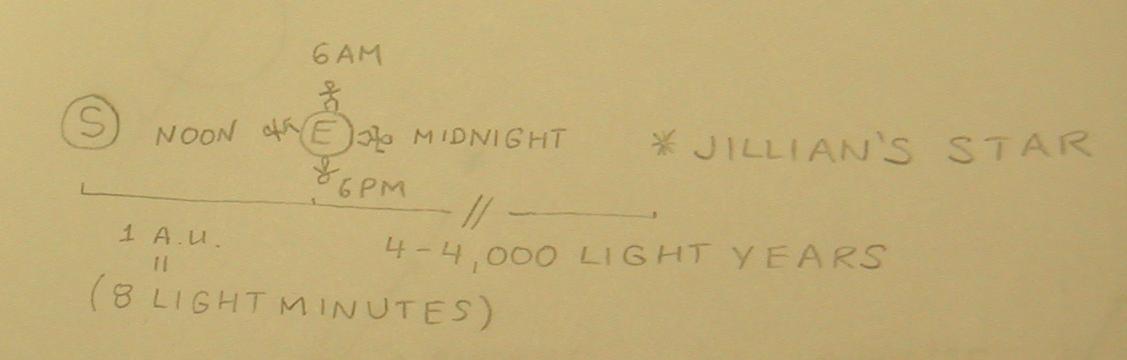 6AM
S NOON E MIDNIGHT * JILLIAN'S STAR
6PM
1 A.U. 4-4,000 LIGHT YEARS
=
(8 LIGHT MINUTES)